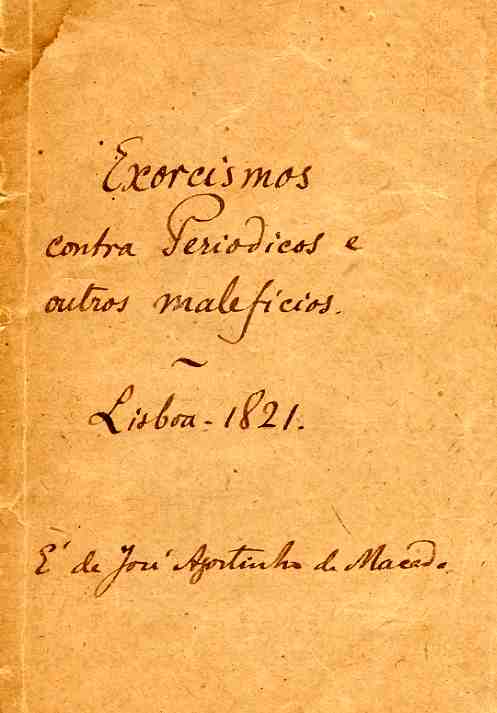 Exorcismos
contra Periodicos e
outros maleficios.
~
Lisboa - 1821.
E' de José Agostinho de Macedo